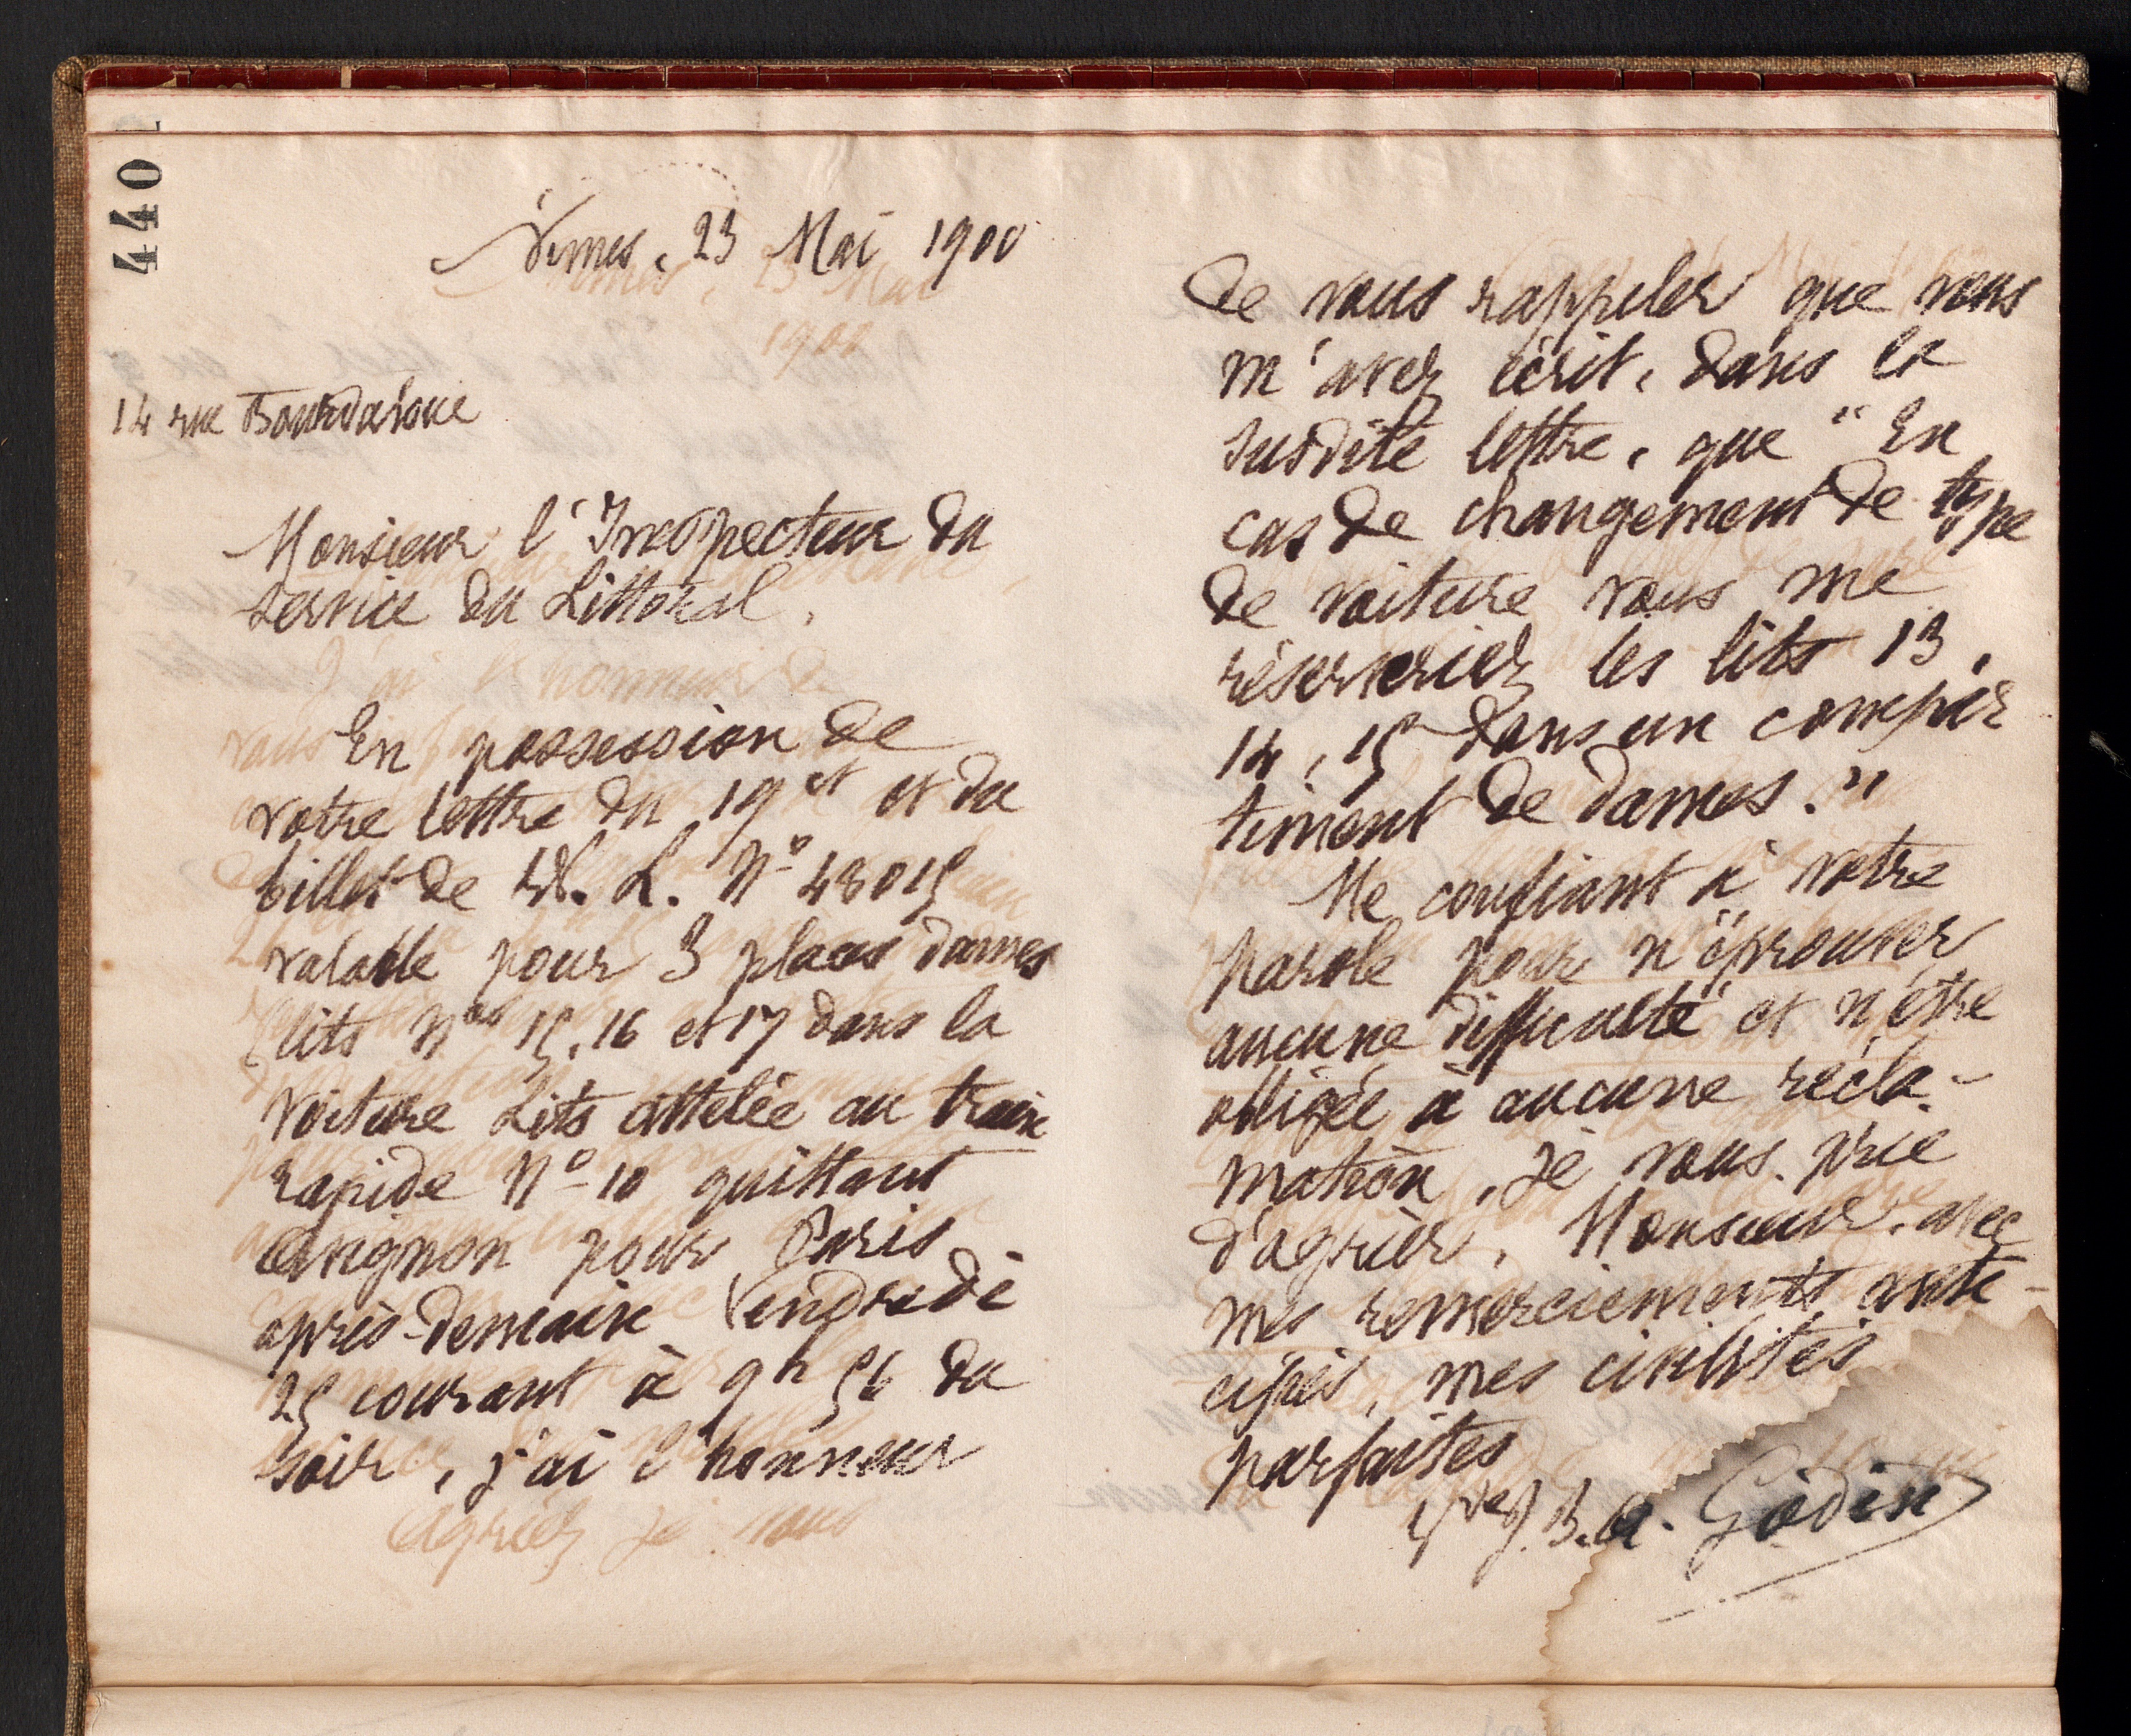 440
Nîmes, 23 Mai 1900
14 rue Bourdaloue
Monsieur l'Inspecteur du
service du Littoral,
En possession de
votre lettre du 19 ct et du
billet de W. L. N° 48015
valable pour 3 places dames
lits Nos 15, 16 et 17 dans la
voiture Lits attelée au train
rapide N° 10 quittant
Avignon pour Paris
après-demain Vendredi
25 courant à 9h 56 du
soir, j'ai l'honneur
de vous rappeler que vous
m'avez écrit, dans la
susdite lettre, que "En
cas de changement de type
de voiture vous me
réserveriez les lits 13,
14, 15 dans un compar
timent de dames."
Me confiant à votre
parole pour n'éprouver
aucune difficulté et n'être
obligée à aucune récla-
mation, je vous prie
d'agréer, Monsieur, avec
mes remerciements anti-
cipés, mes civilités
parfaites
Vve J. B. A. Godin